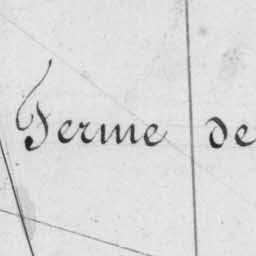 Ferme de